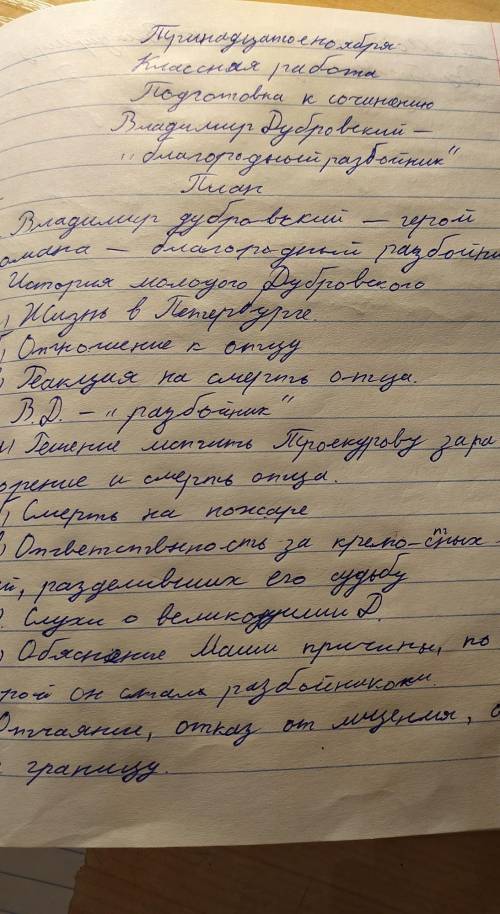 Тринадцатое ноября.
Классная работа
Подготовка к сочинению
Владимир Дубровский –
"благородный разбойник"
План
Владимир дубровский – герой
омана – благородный разбойни
История молодого Дубровского
) Жизнь в Петербурге.
) Отношение к отцу
) Реакция на смерть отца.
В.Д. – "разбойник"
) Решение мстить Троекурову за ра
зорение и смерть отца.
) Смерть на пожаре
) Ответствнность за крепо-стных
ей, разделивших его судьбу
. Слухи о великодушии Д.
) Обяснение Маши причины, по
торой он сталь разбойником.
Отчаянье, отказ от мщения, 
границу.